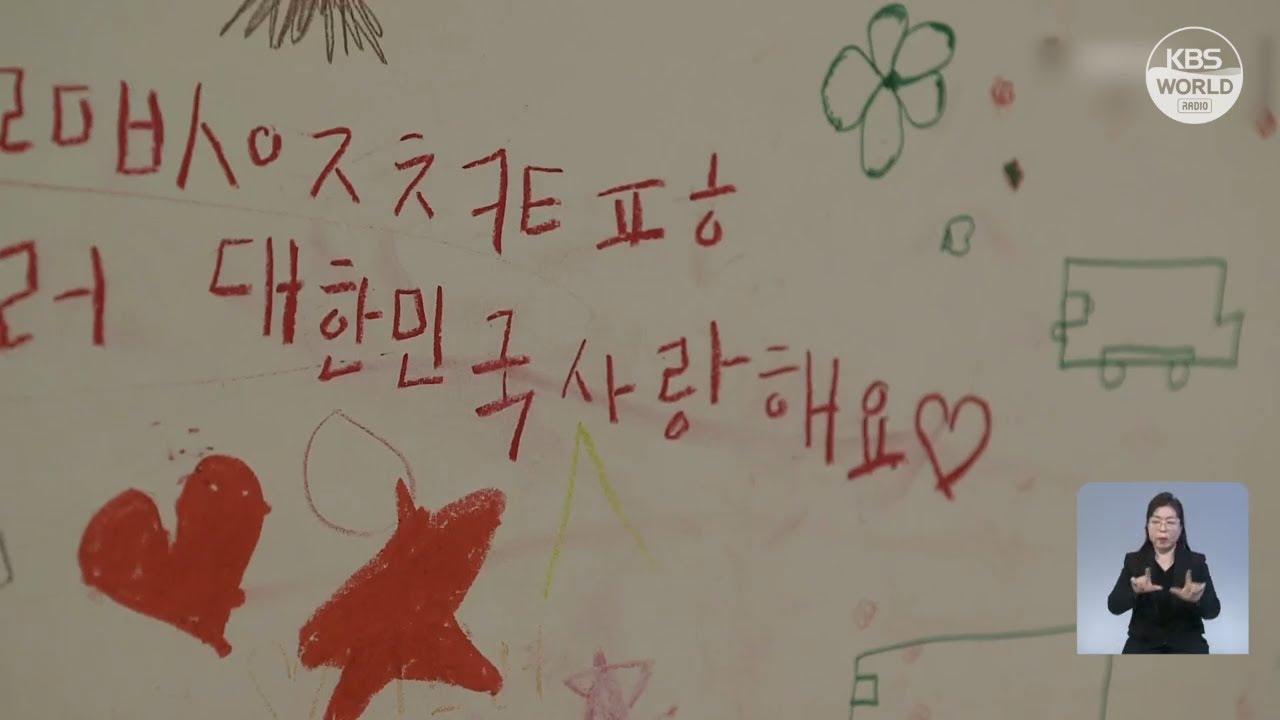 ㄹㅁㅂㅅㅇㅈㅊㅋㅌㅍㅎ
러 대한민국 사랑해요♡
KBS
WORLD
RADIO